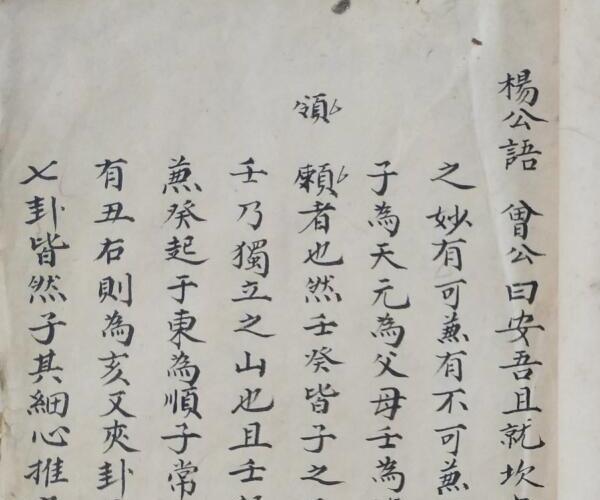 楊公語 曾公曰安吾且就坎
之妙有可兼有不可兼
子為天元為父母壬為
領
賴者也然壬癸皆子之
壬乃獨立之山也且壬
兼癸起于東為順子常
有丑右則為亥又夾卦
七卦皆然子其細心推